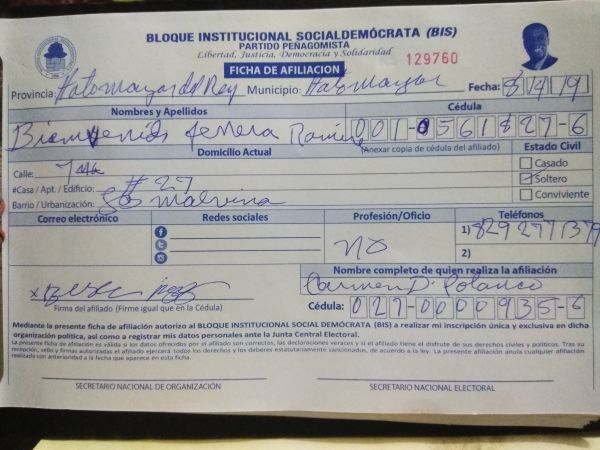 BLOQUE INSTITUCIONAL SOCIALDEMÓCRATA (BIS)
PARTIDO PEÑAGOMISTA
Libertad, Justicia, Democracia y Solidaridad
FICHA DE AFILIACION 129760
Provincia: Hato mayor del Rey Municipio: Hato mayor Fecha: 8/4/19
Nombres y Apellidos Cédula
Bienvenido Ramirez 001-0561827-6
Domicilio Actual (Anexar copia de cédula del afiliado) Estado Civil
Calle: Casado
#Casa / Apt. / Edificio: #27 Soltero
Barrio / Urbanización: malvina Conviviente
Correo electrónico Redes sociales Profesión/Oficio Teléfonos
NO 1) 829277137
2)
Nombre completo de quien realiza la afiliación
Carmen D. Polanco
Firma del afiliado (Firme igual que en la Cédula) Cédula: 027-0000935-6
Mediante la presente ficha de afiliación autorizo al BLOQUE INSTITUCIONAL SOCIAL DEMÓCRATA (BIS) a realizar mi inscripción única y exclusiva en dicha
organización política, así como a registrar mis datos personales ante la Junta Central Electoral.
La presente ficha de afiliación es válida si los datos ofrecidos por el afiliado son correctos, las declaraciones veraces y si el afiliado tiene el disfrute de sus derechos civiles y políticos. Tras su
recepción, sello y firmas autorizadas el afiliado ejercerá todos los derechos y los deberes estatutariamente sancionados, de acuerdo a la ley. La presente afiliación anula cualquier afiliación
realizada con anterioridad a la fecha que aparece en esta ficha.
SECRETARIO NACIONAL DE ORGANIZACIÓN SECRETARIO NACIONAL ELECTORAL